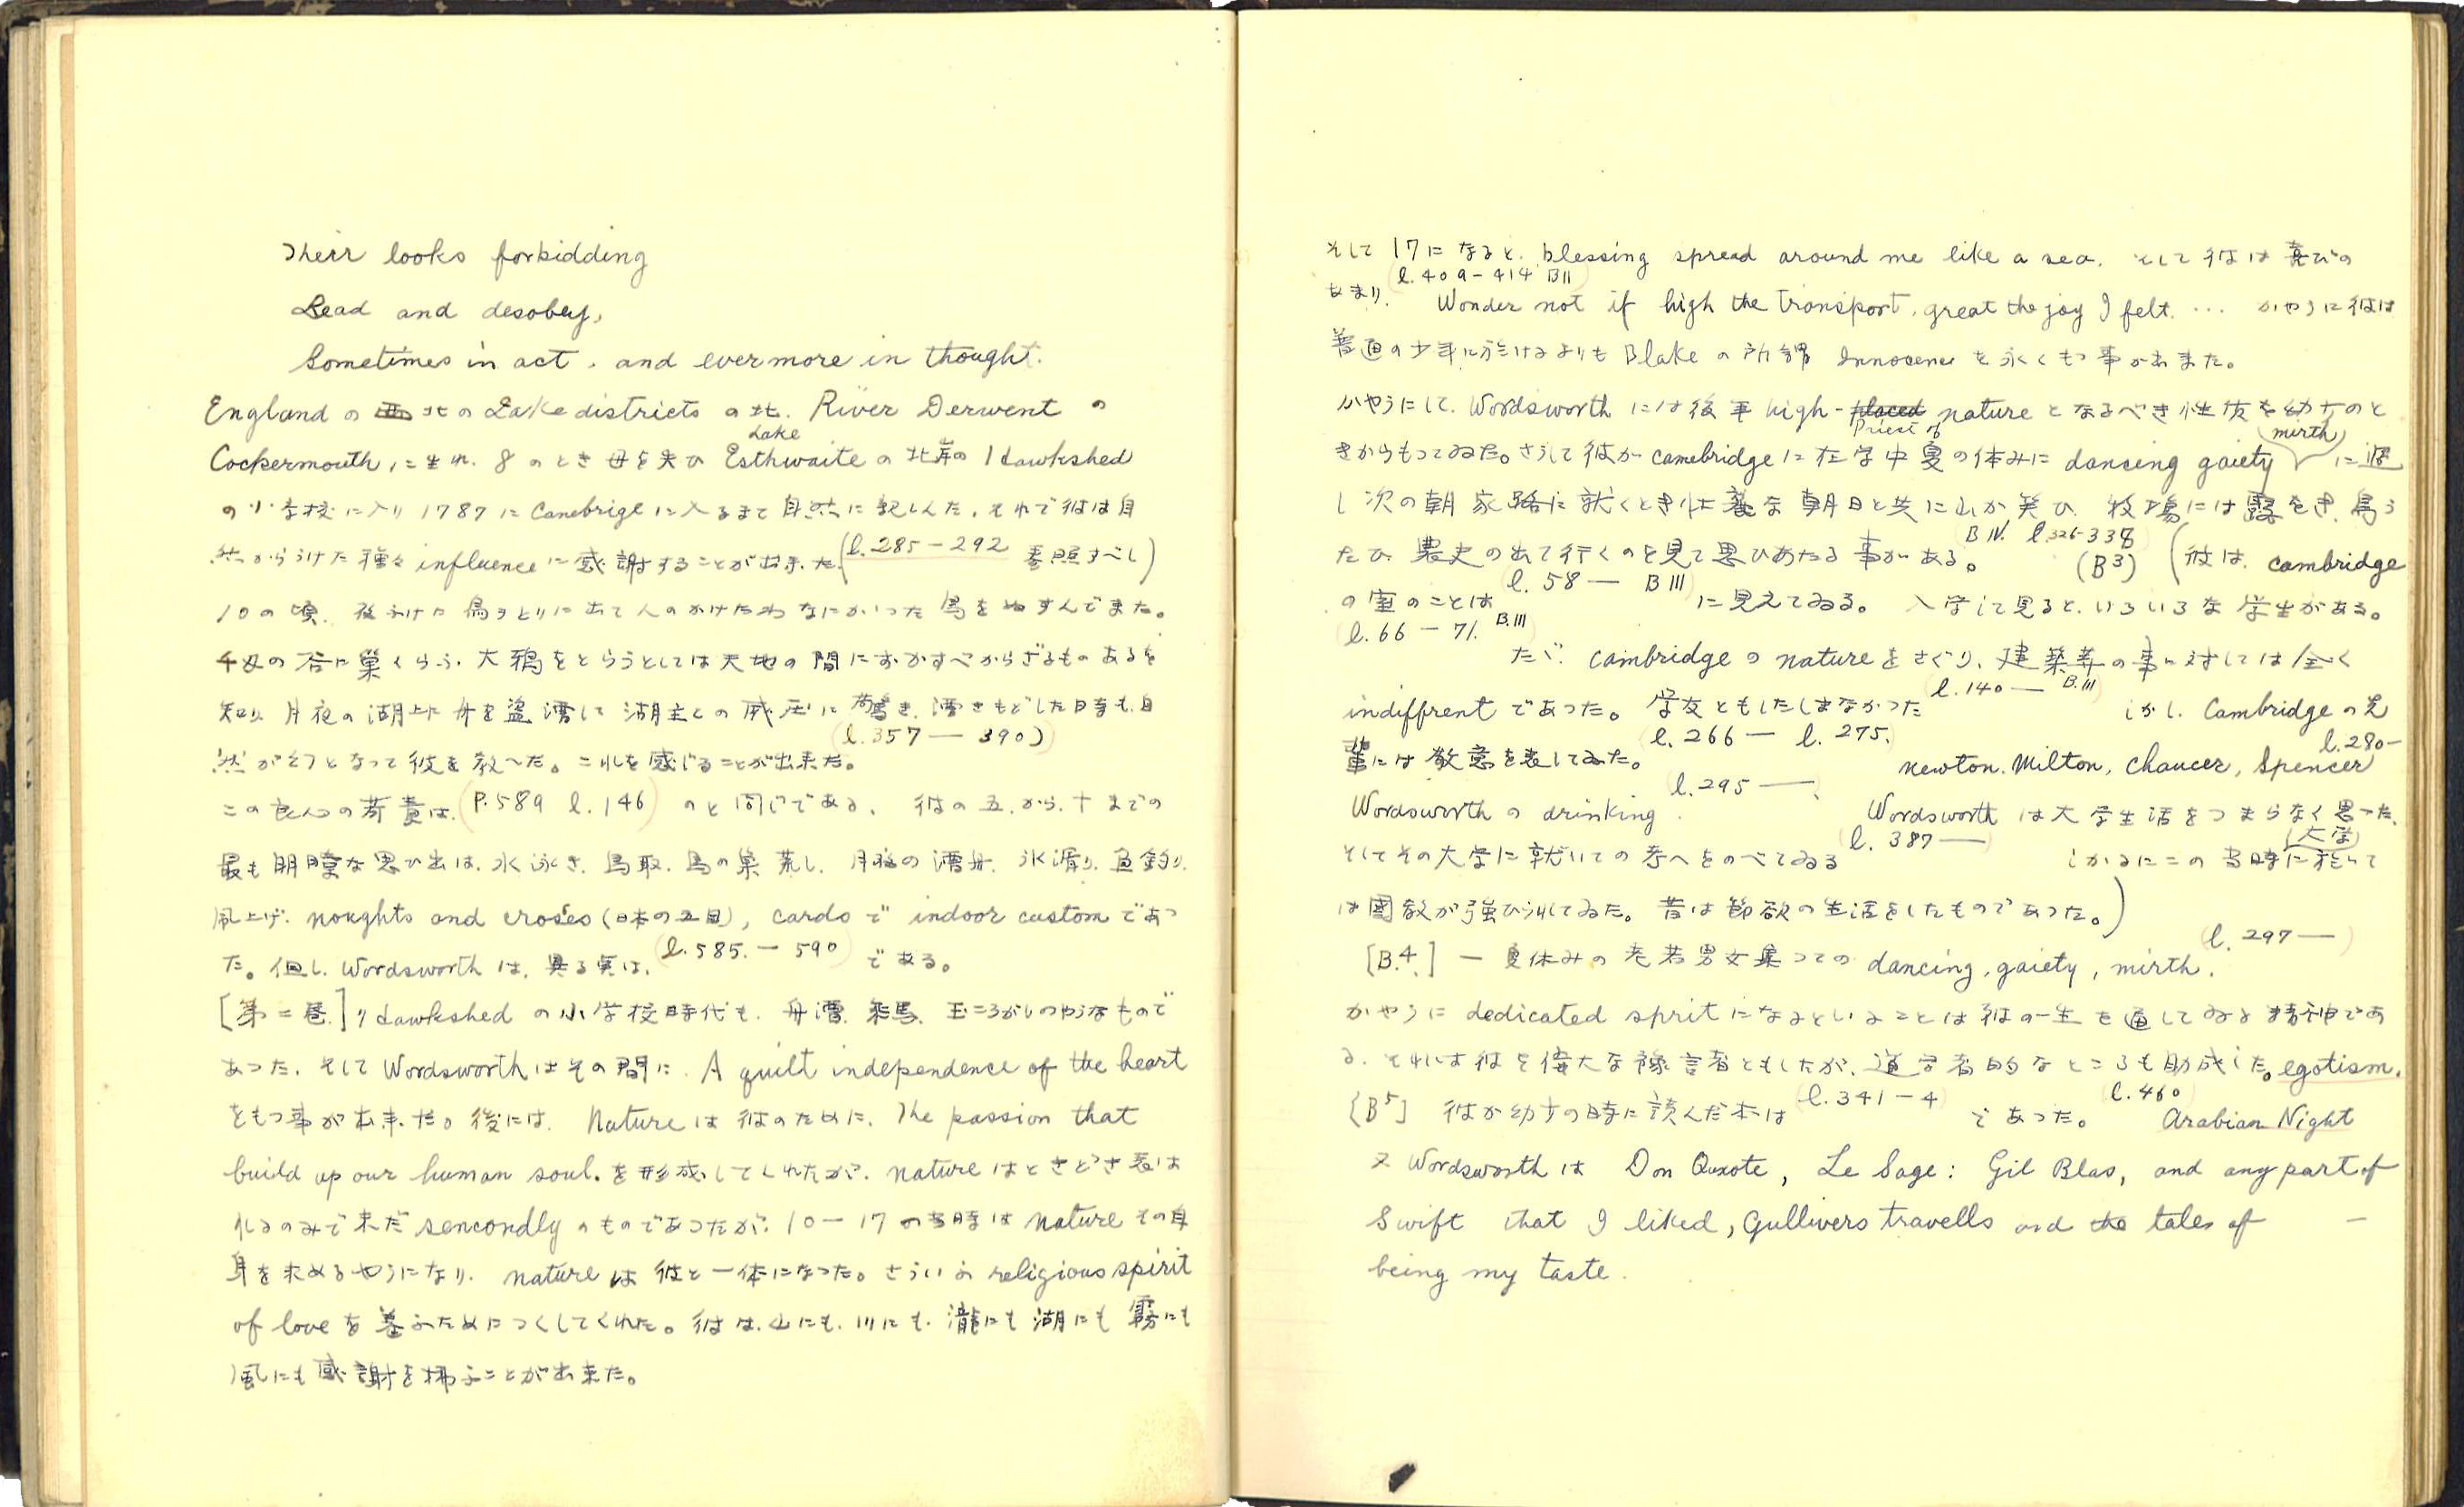 Their looks forbidding
Lead and desobey,
Sometimes in act, and evermore in thought.
England の 北の Lake districts の北. River Derwent の
Cockermouth に生れ. 8 のとき母を失ひ Esthwaite Lake の北岸の Hawkshed
の小学校に入り 1787 に Canebrige に入るまで自然に親しんだ. それで彼は自
然からうけた種々 influence に感謝することが出来た. (l. 285-292 参照すべし)
10の頃. 夜ふけに鳥をとりに出て人のかけたわなにかゝった鳥をぬすんでまた。
の谷に巣くらふ. 大鴉をとらうとしては天地の間におかすべからざるものあるを
知り. 月夜の湖上に舟を盗漕して湖主との威圧に驚き. 漕きもどした時も. 自
然が幻となって彼を教へた。これを感じることが出来た。 (l. 357 — 390)
この良心の苛責は. (P. 589 l. 146) のと同じである. 彼の五.から.十までの
最も明瞭な思ひ出は. 水泳き. 鳥取. 鳥の巣荒し. 月夜の漕舟. 氷滑り. 魚釣り.
凧上げ. noughts and croses (日本の五目), cards で indoor custom であつ
た。但し. Wordsworth は. 異る実は. (l. 585. — 590) である。
[第二巻.] Hawkshed の小学校時代も. 舟漕. 乗馬. 玉ころがしのやうなもので
あつた. そして Wordsworth はその間に. A quilt independence of the heart
をもつ事が出来た。後には. Nature は彼のために. The passion that
build up our human soul. を形成してくれたが. nature はときどき表は
れるのみで未だ sencondly のものであつたが. 10 — 17 の当時は nature その自
身を求めるやうになり. nature は彼と一体になつた。さういふ religious spirit
of love を養ふためにつくしてくれた。彼は. 山にも. 川にも. 瀧にも湖にも霧にも
風にも感謝を捧ふことが出来た。
そして 17 になると. blessing spread around me like a sea. そして彼は喜びの
あまり. (l. 409-414 BII) Wonder not if high the transport, great the joy I felt. ... かやうに彼は
普通の少年に於けるよりも Blake の所謂 Innocence を永くもつ事が出来た。
かやうにして. Wordsworth には後年 high-placed Priest of nature となるべき性质を幼少のと
きからもつてゐた。さうして彼が camebridge に在学中夏の休みに dancing gaiety (mirth) に過
し次の朝家路に就くとき 朝日と共に山が笑ひ. 牧場には露をき. 鳥う
たひ. 農夫の出て行くのを見て思ひあたる事がある。 B IV. l. 326-338 (B3) (彼は. cambridge
の室のことは l. 58 — B III に見えてゐる。 入学して見ると. いろいろな学生がある。
(l. 66 — 71. B.III) たゞ. Cambridge の nature をさぐり. 建築等の事に対しては全く
indiffrent であつた。学友ともしたしまなかつた (l. 140 — B.III) しかし. Cambridge の先
輩には敬意を表してゐた。 (l. 266 — l. 275.) Newton. Milton, Chaucer, Spencer l. 280-
Wordsworth の drinking. (l. 295 —. Wordsworth は大学生活をつまらなく思つた.
そしてその大学に就いての考へをのべてゐる (l. 387 —) しかるにこの当時(大学)に於いて
は國教が強ひられてゐた。昔は節欲の生活をしたものであつた。)
[B.4.] — 夏休みの老若男女集つての dancing, gaiety, mirth. (l. 297 —)
かやうに dedicated sprit になるといふことは彼の一生を通してゐる精神であ
る. それは彼を偉大な豫言者ともしたが. 道学者的なところも助成した。egotism.
[B5] 彼が幼少の時に読んだ本は (l. 341 — 4) であつた。 l. 460 Arabian Night
又 Wordsworth は Don Quxote, Le Sage: Gil Blas, and any part of
Swift that I liked, Gullivers travells and the tales of —
being my taste.